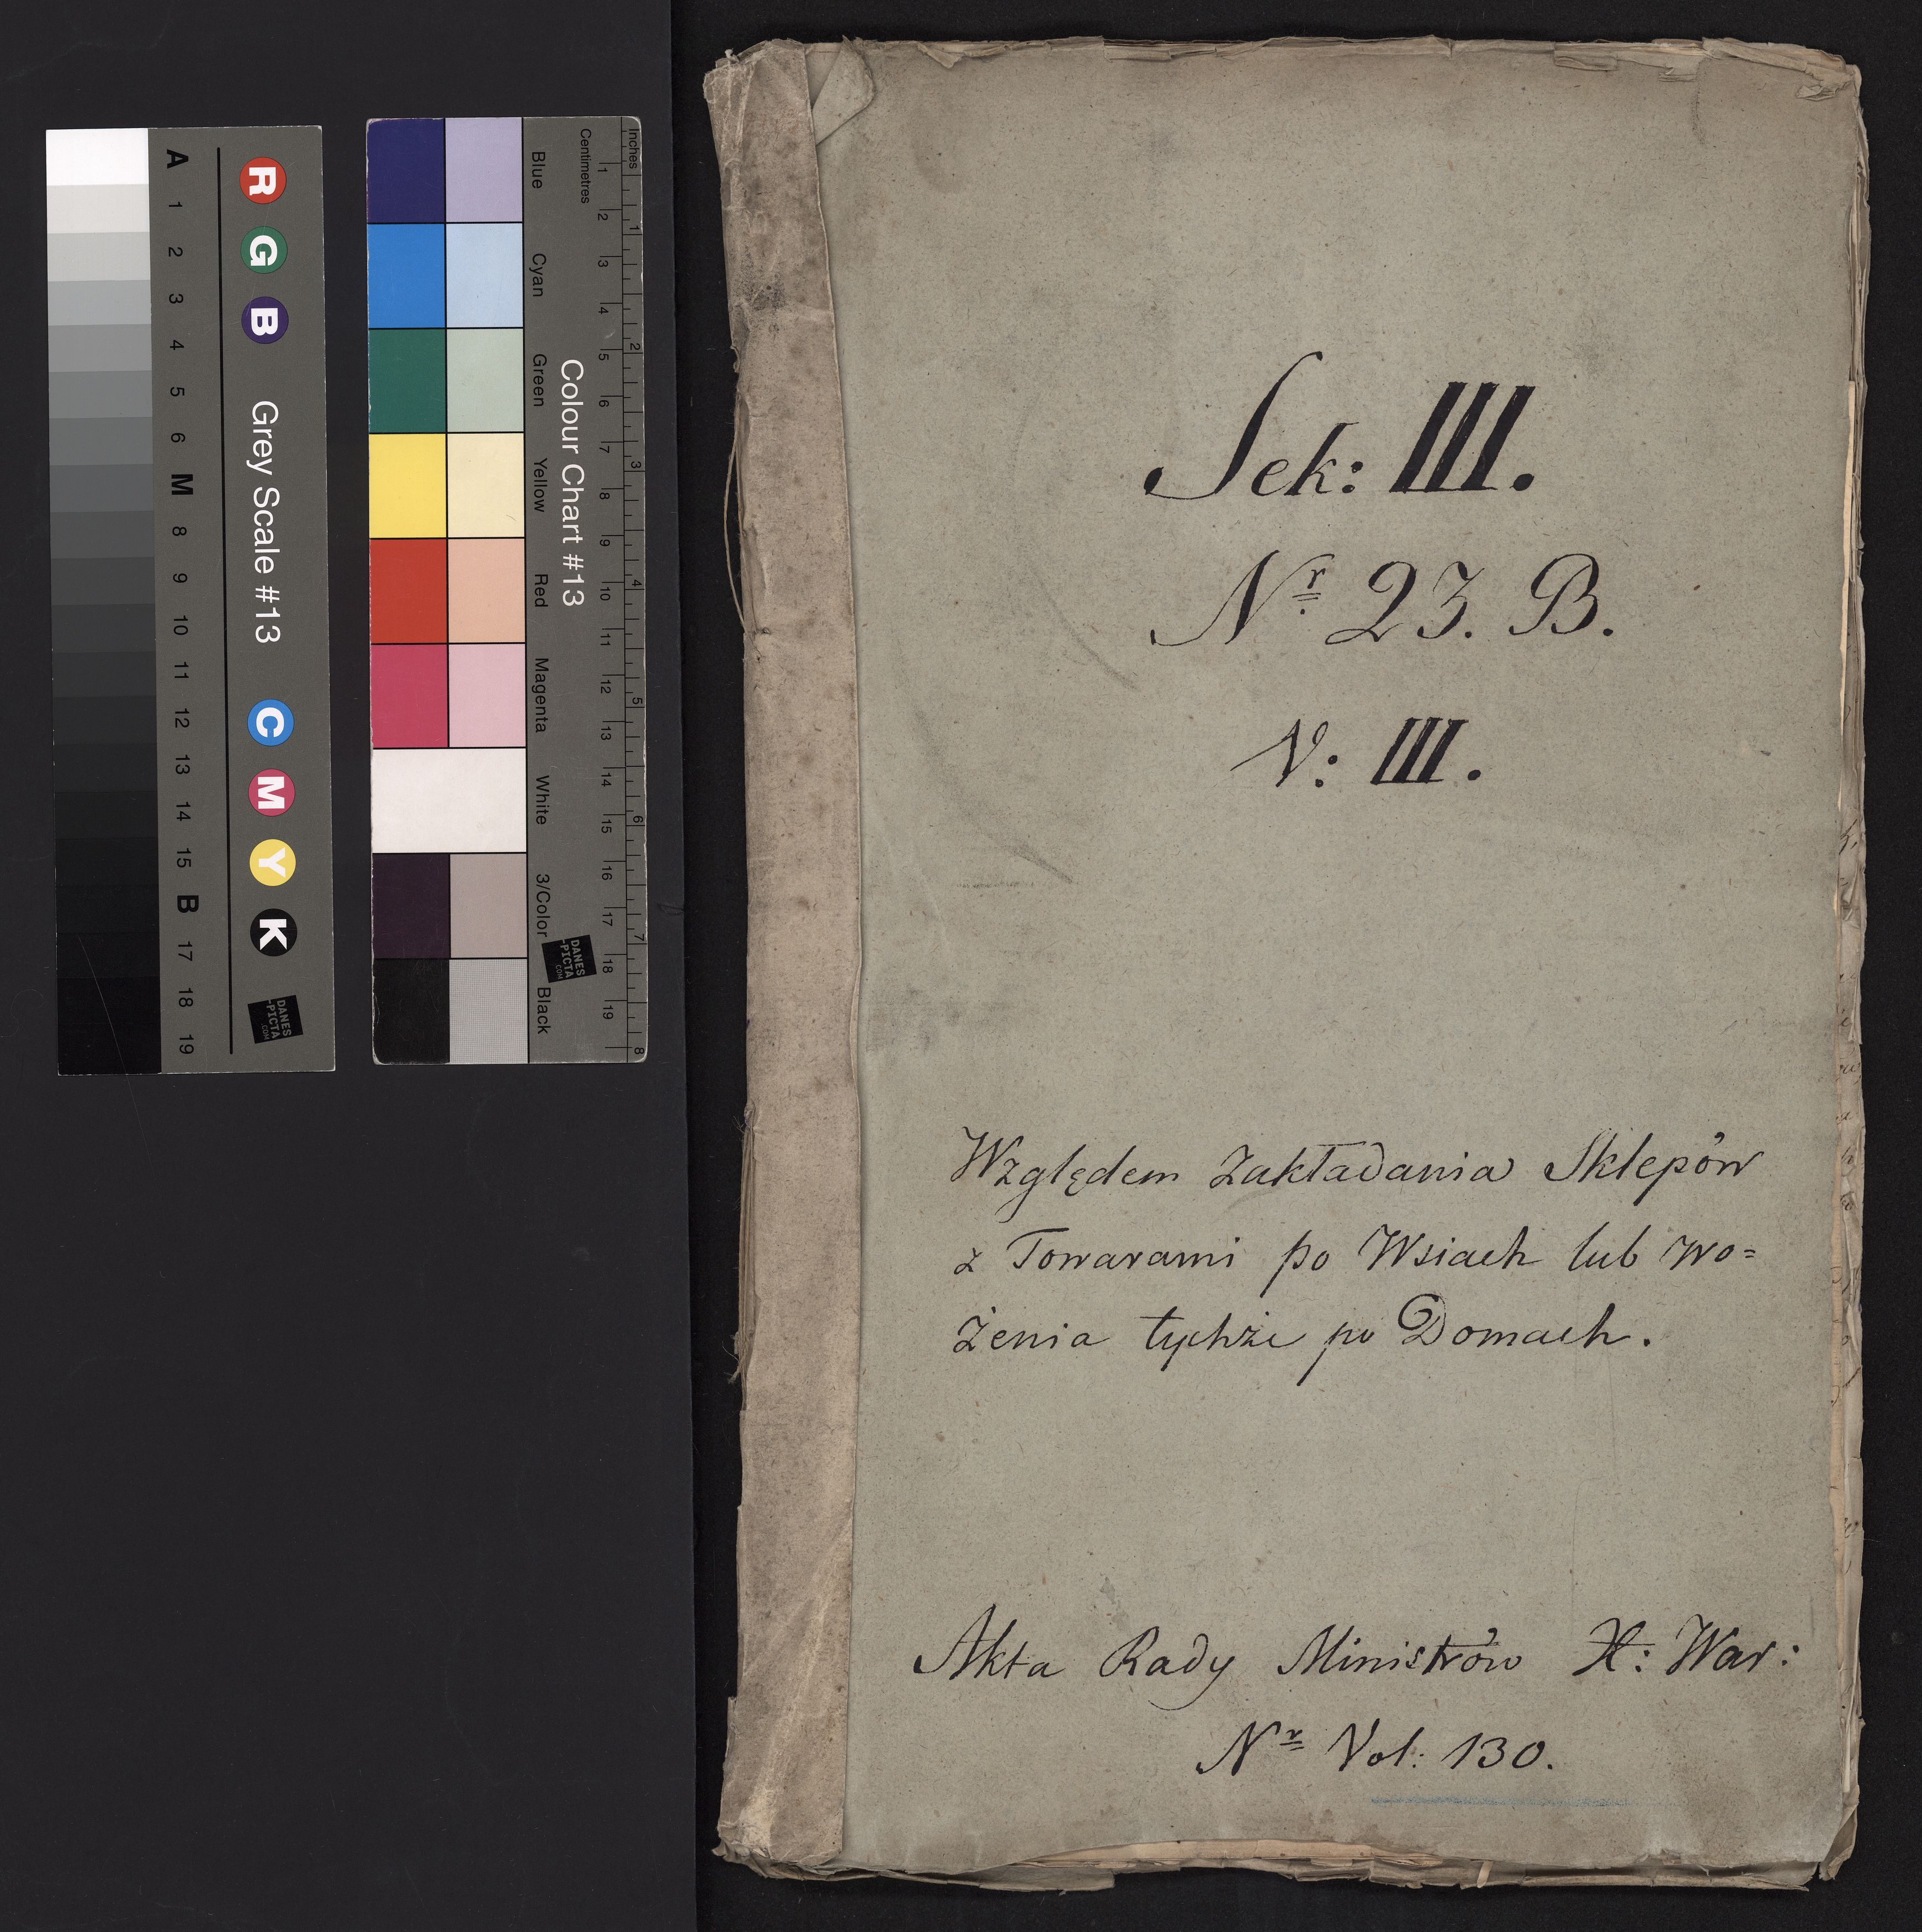 Sek: III.
Nr 23. B.
V: III.
Względem Zakładania Sklepów
z Towarami po Wsiach lub wo=
żenia tychże po Domach.
Akta Rady Ministrów X: War:
Nr Vol: 130.
A 1 2 3 4 5 6 M 8 9 10 11 12 13 14 15 B 17 18 19
R G B Grey Scale #13 C M Y K
DANES
-PICTA
.COM
Blue Cyan Green Yellow Red Magenta White 3/Color Black
Colour Chart #13
DANES
-PICTA
.COM
Centimetres 1 2 3 4 5 6 7 8 9 10 11 12 13 14 15 16 17 18 19
Inches 1 2 3 4 5 6 7 8